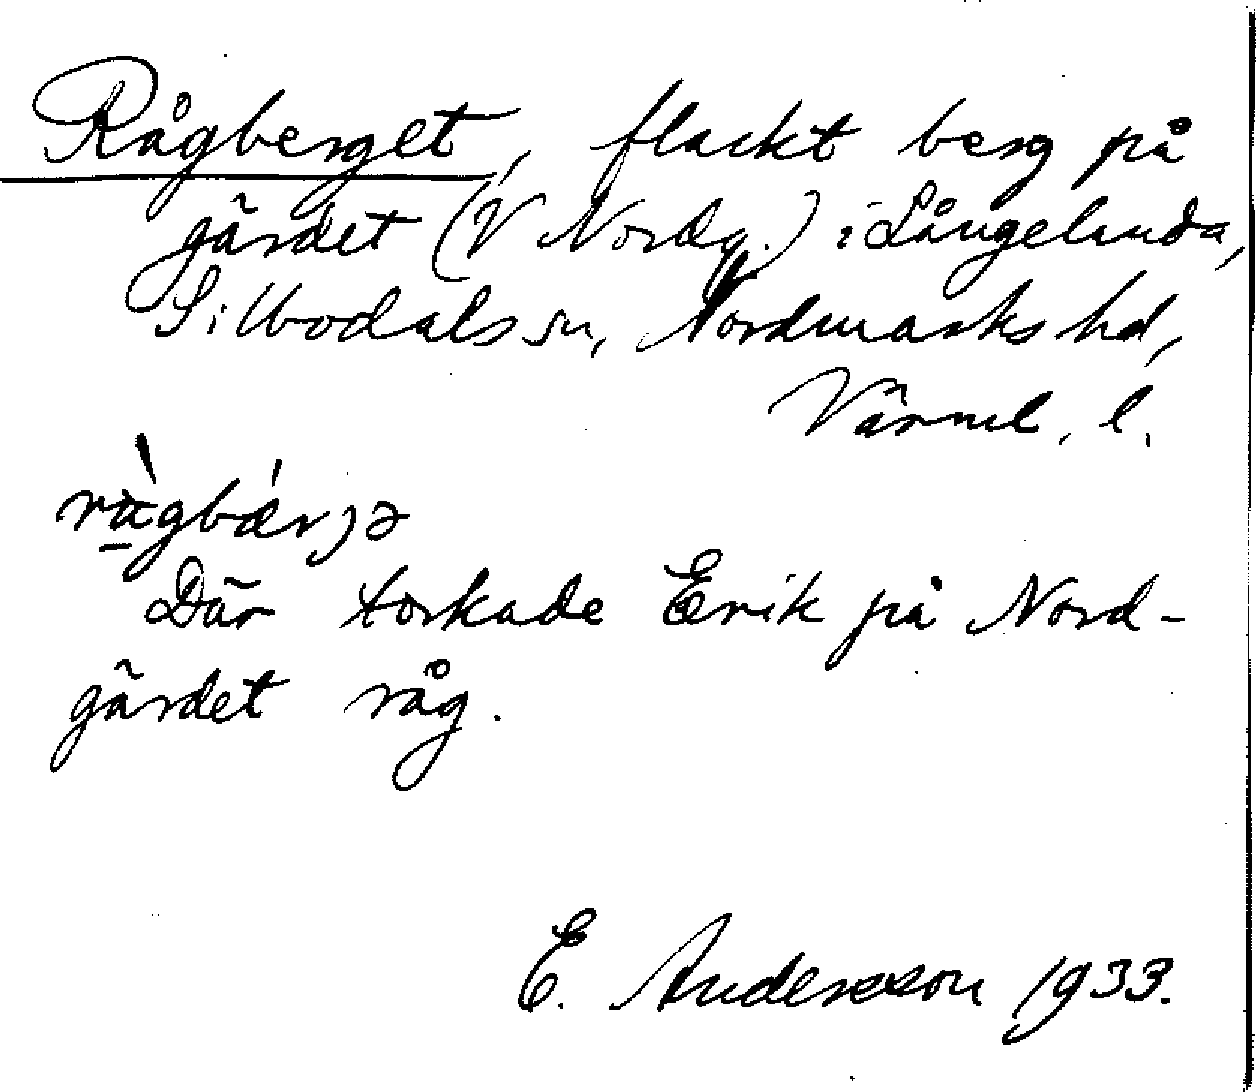 Rågberget, flackt berg på
gärdet (V Nordg.) i Långelanda,
Sillbodals sn, Nordmarks hd,
Värml. l.
rågbærjə
Där torkade Erik på Nord-
gärdet råg.
E. Andersson 1933.